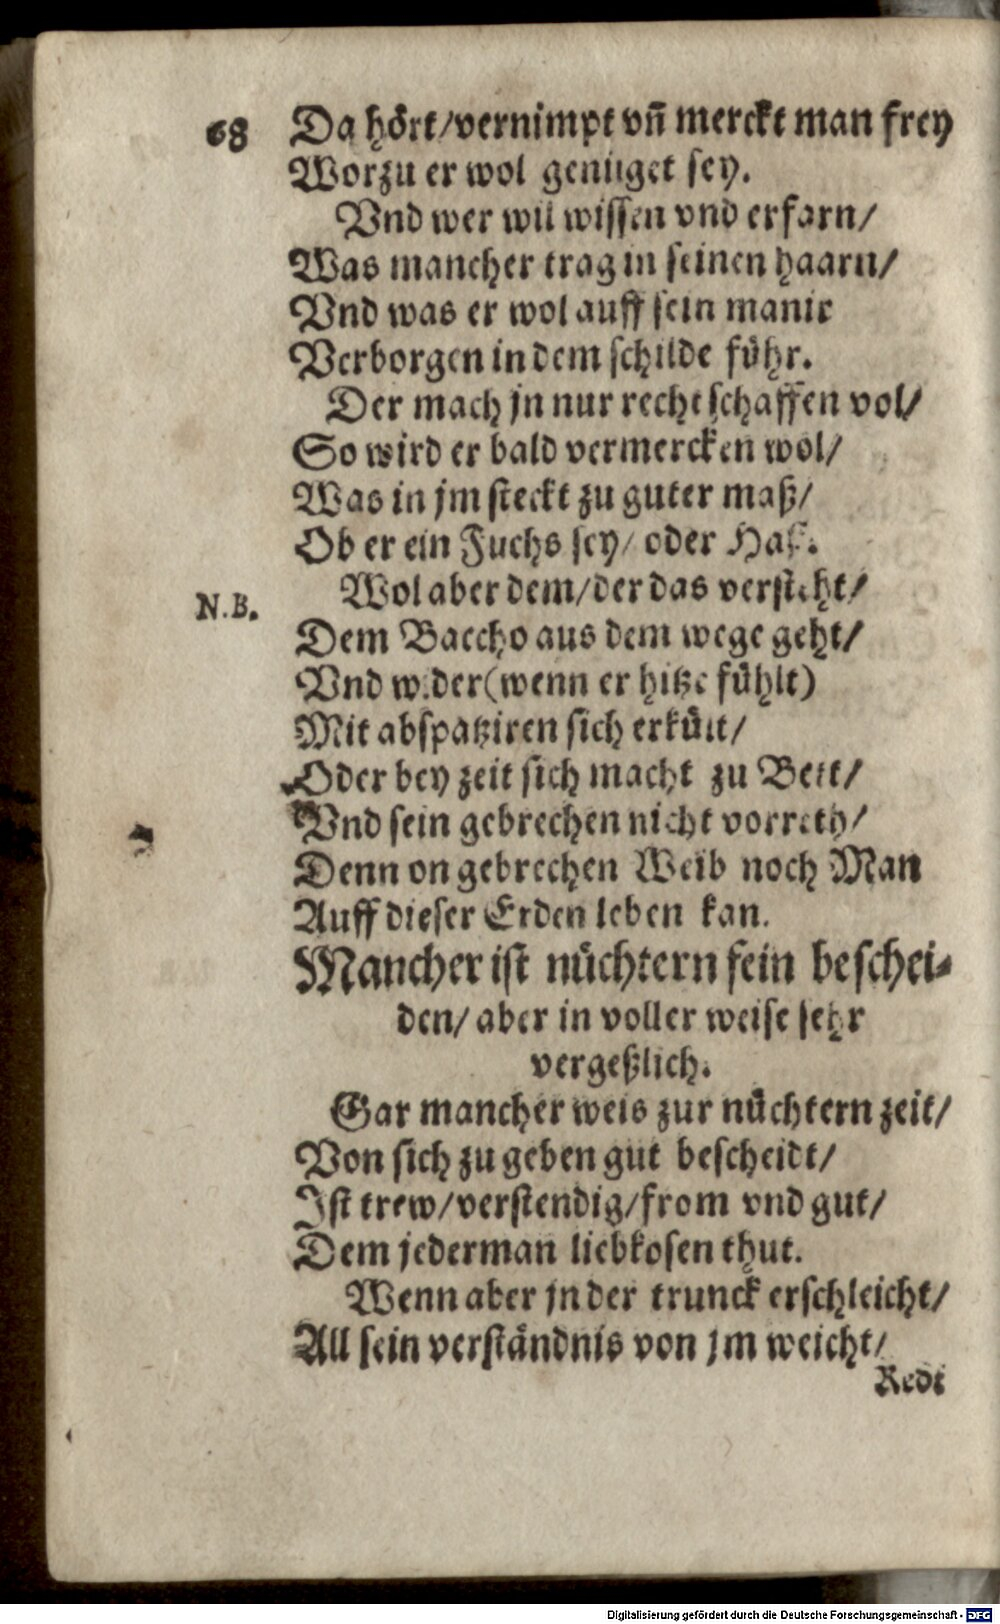 68 Da hört/vernimpt vñ merckt man frey
Worzu er wol geniiget sey.
Vnd wer wil wissen vnd erfarn/
Was mancher trag in seinen haarn/
Vnd was er wol auff sein manir
Verborgen in dem schilde führ.
Der mach jn nur rechtschaffen vol/
So wird er bald vermercken wol/
Was in jm steckt zu guter maß/
Ob er ein Fuchs sey/ oder Has.
N.B. Wol aber dem/der das versteht/
Dem Baccho aus dem wege geht/
Vnd wider(wenn er hitze fühlt)
Mit abspatziren sich erkült/
Oder bey zeit sich macht zu Bett/
Vnd sein gebrechen nicht vorreth/
Denn on gebrechen Weib noch Man
Auff dieser Erden leben kan.
Mancher ist nüchtern fein beschei-
den/ aber in voller weise sehr
vergeßlich.
Gar mancher weis zur nüchtern zeit/
Von sich zu geben gut bescheidt/
Ist trew/verstendig/from vnd gut/
Dem jederman liebkosen thut.
Wenn aber jn der trunck erschleicht/
All sein verständnis von jm weicht/
Redt
Digitalisierung gefördert durch die Deutsche Forschungsgemeinschaft - DFG